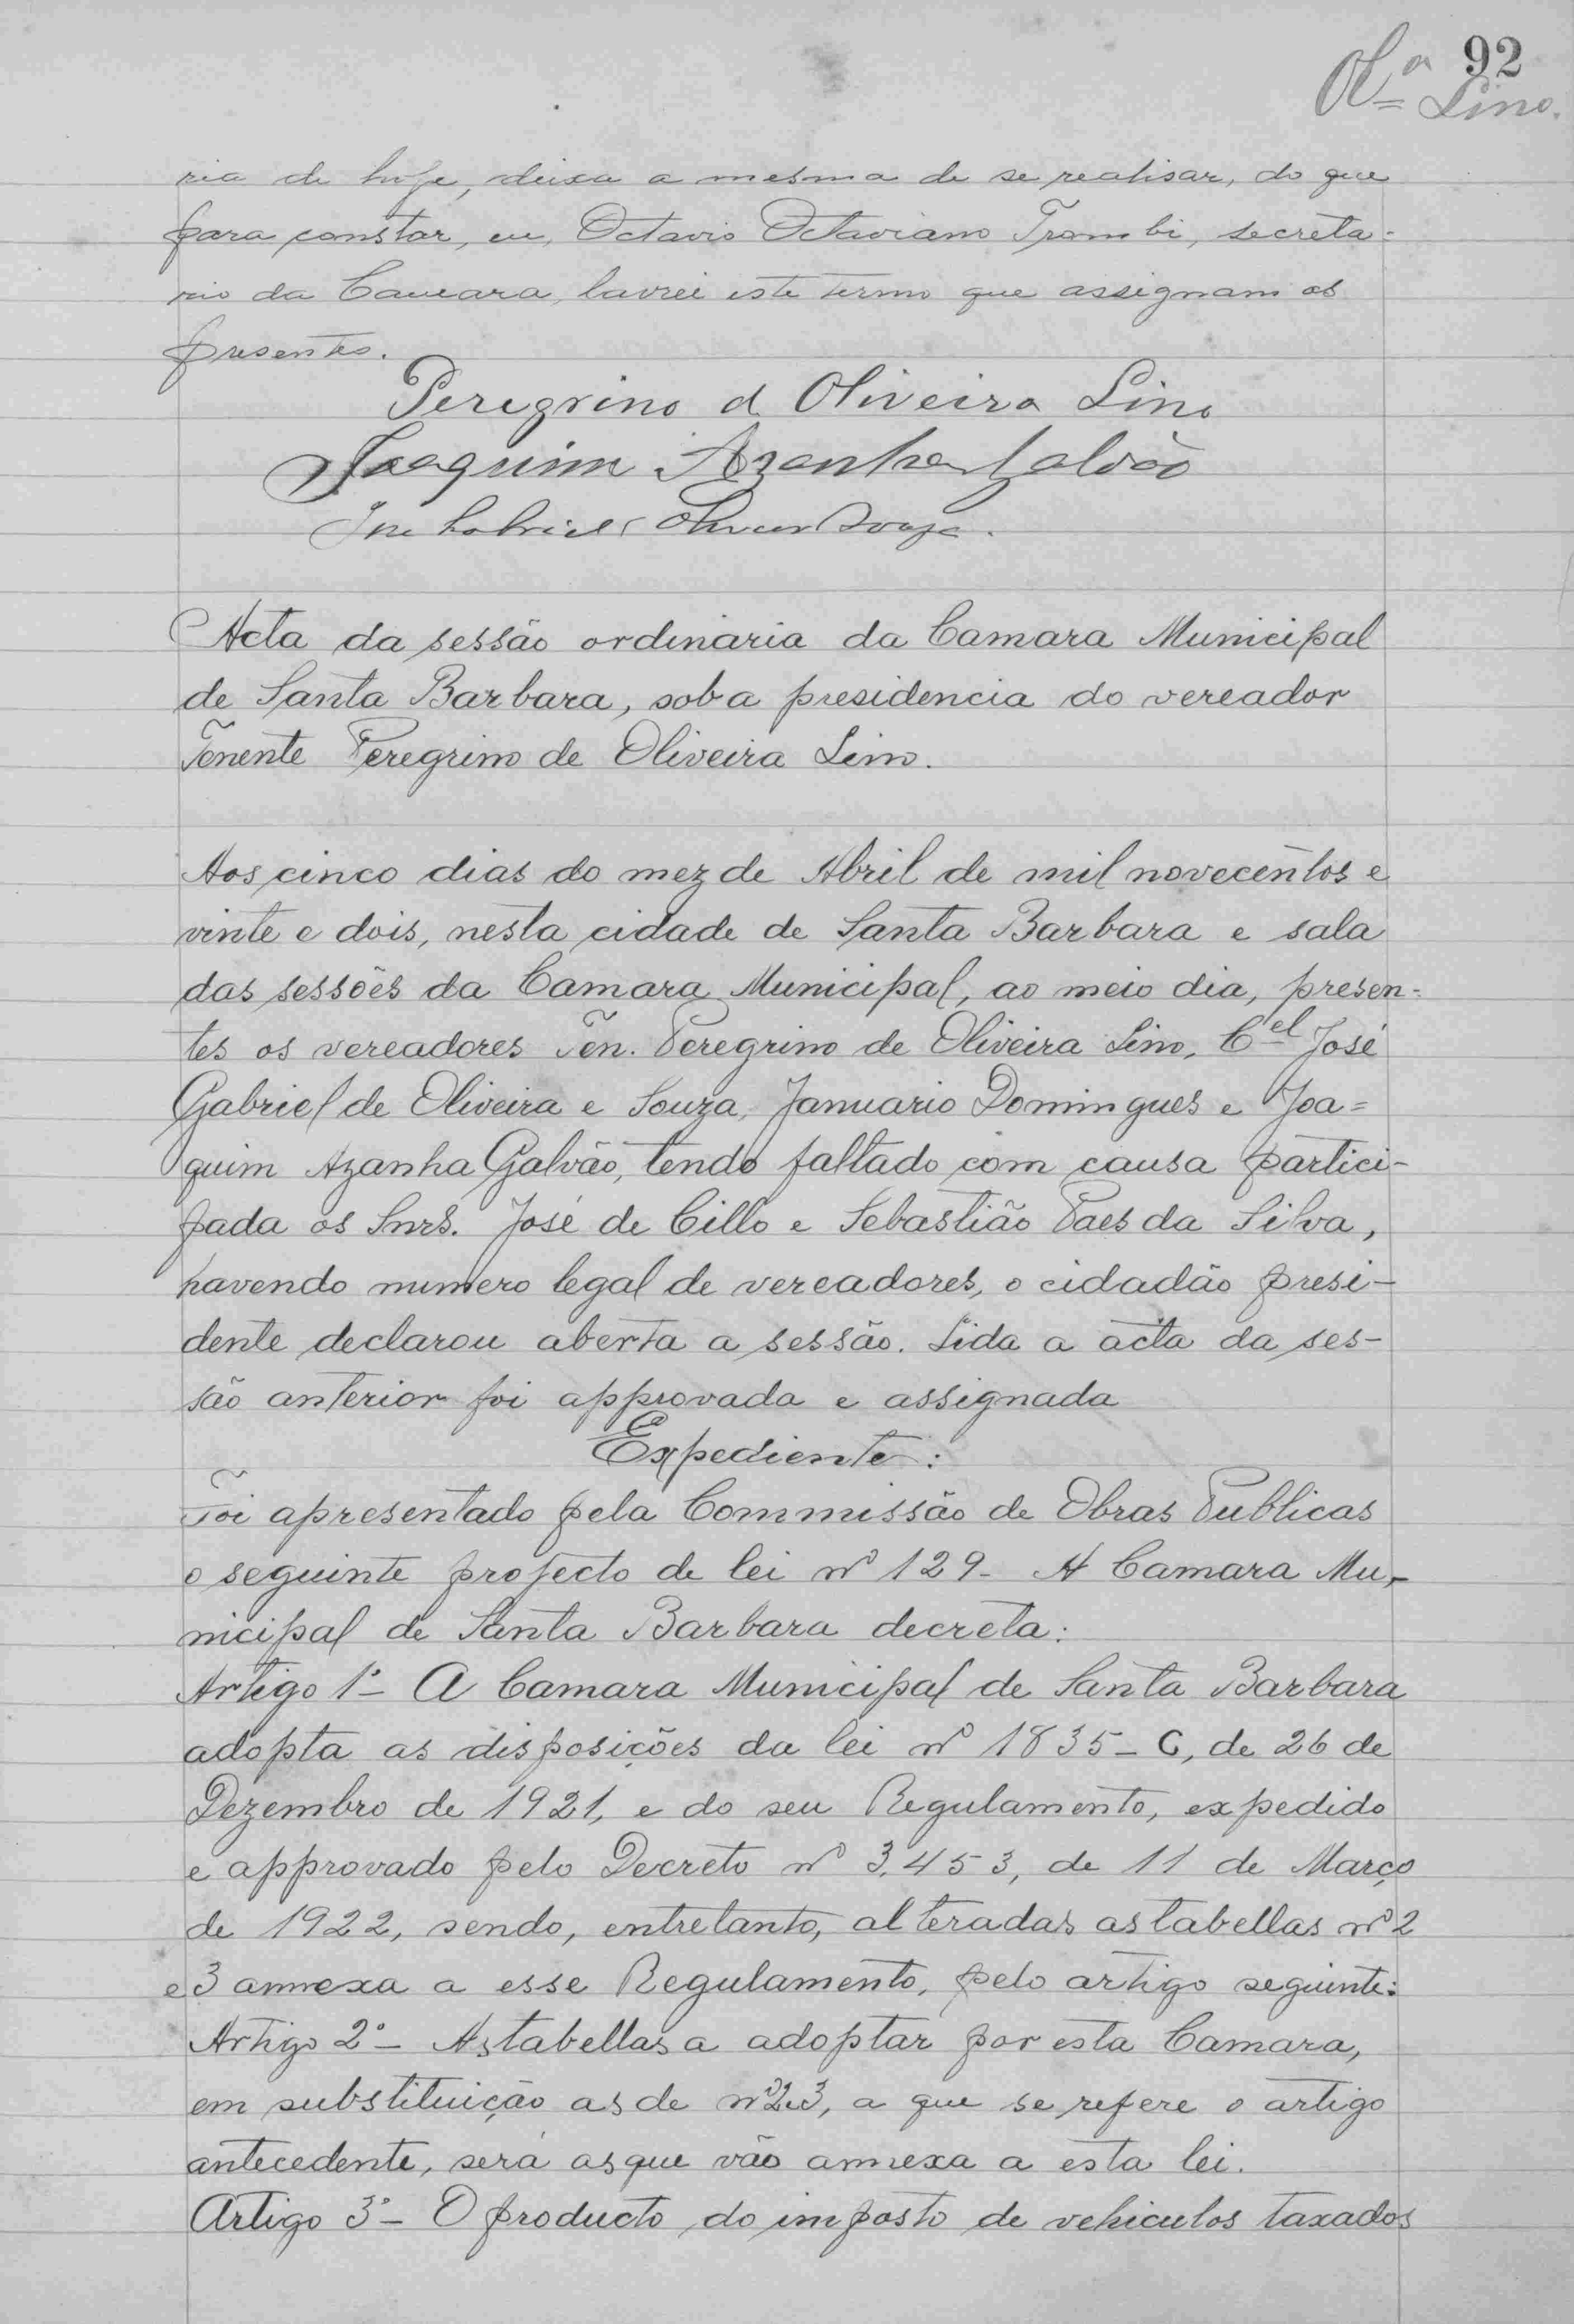 92
Olª Lino.
ria de hoje, deixa a mesma de se realisar, do que
para constar, eu, Octavio Octaviano Trombi, secreta-
rio da Camara, lavrei este termo que assignam os
presentes.
Peregrino d Oliveira Lino
Joaquim Azanha Galvão
José Gabriel Oliveira Souza.
Acta da sessão ordinaria da Camara Municipal
de Santa Barbara, sob a presidencia do vereador
Tenente Peregrino de Oliveira Lino.
Aos cinco dias do mez de Abril de mil novecentos e
vinte e dois, nesta cidade de Santa Barbara e sala
das sessões da Camara Municipal, ao meio dia, presen-
tes os vereadores Ten. Peregrino de Oliveira Lino, Cel José
Gabriel de Oliveira e Souza, Januario Domingues e Joa=
quim Azanha Galvão, tendo faltado com causa partici-
pada os Snrs. José de Cillo e Sebastião Paes da Silva,
havendo numero legal de vereadores, o cidadão presi-
dente declarou aberta a sessão. Lida a acta da ses-
são anterior foi approvada e assignada
Expediente:
Foi apresentado pela Commissão de Obras Publicas
o seguinte projecto de lei nº 129- A Camara Mu-
nicipal de Santa Barbara decreta:
Artigo 1º- A Camara Municipal de Santa Barbara
adopta as disposições da lei nº 1835-C, de 26 de
Dezembro de 1921, e do seu Regulamento, expedido
e approvado pelo Decreto nº 3.453, de 11 de Março
de 1922, sendo, entretanto, alteradas as tabellas nº 2
e 3 annexa a esse Regulamento, pelo artigo seguinte:
Artigo 2º- As tabellas a adoptar por esta Camara,
em substituição as de nº 2 e 3, a que se refere o artigo
antecedente, será as que vão annexa a esta lei.
Artigo 3º- O producto do imposto de vehiculos taxados